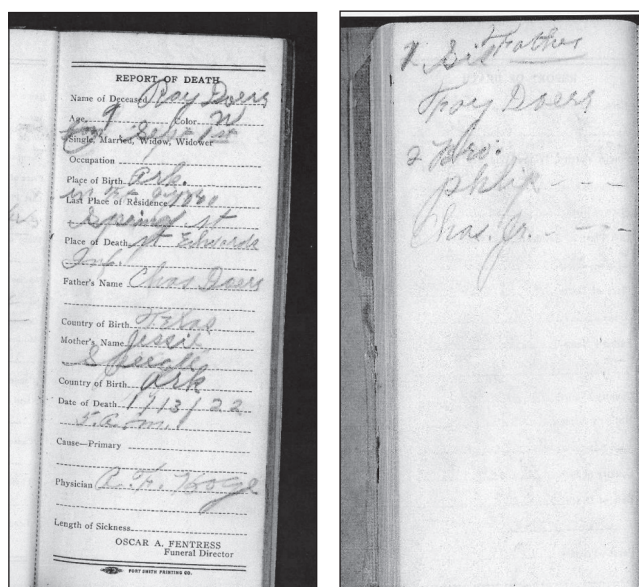 REPORT OF DEATH
Name of Deceased Roy Doers
Age 9 Color W
Born Sept 1st
Single, Married, Widow, Widower
Occupation
Place of Birth Ark.
Last Place of Residence
Spring St
Place of Death St Edwards
Inf.
Father's Name Chas Doers
Country of Birth Texas
Mother's Name Jessie
Country of Birth Ark
Date of Death 1/13/22
5 a.m.
Cause—Primary
Physician
Length of Sickness
OSCAR A. FENTRESS
Funeral Director
FORT SMITH PRINTING CO.
Father
1 Sis
Foy Doers
2 Bro:
Philip - - -
Chas. Jr. - - - -